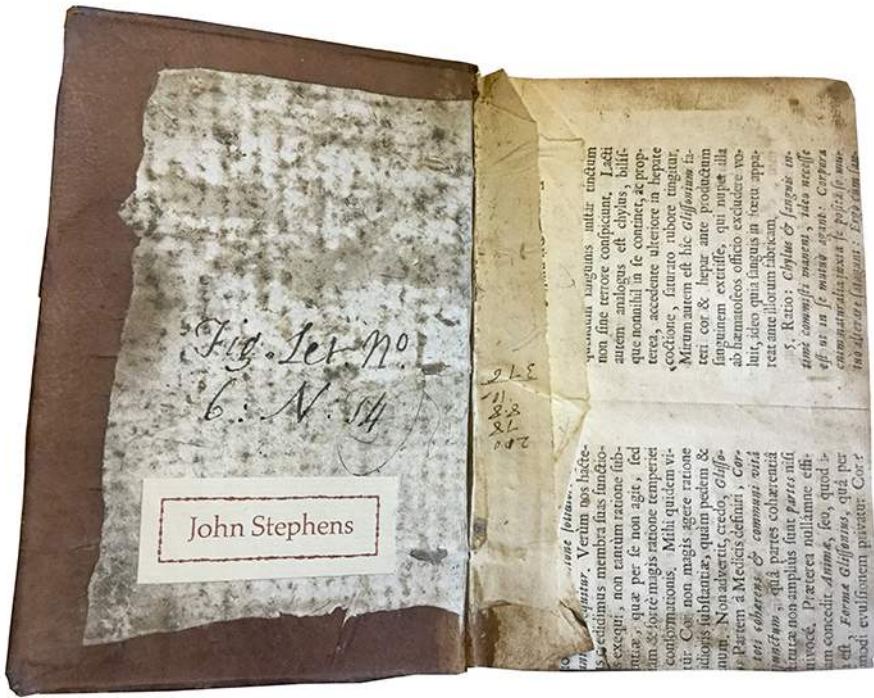 Fig. Let. No
6: N. 54
John Stephens
3-1 6
11.
8.8
78
200
sanguinis initar tinctum
non sine terrore conspiciunt. Lacti
autem analogus est chylus, bilis-
que nonnihil in se continet, ac prop-
terea, accedente ulteriore in hepate
coctione, saturato rubore tingitur.
Mirum autem est hic Glissonium fa-
teri cor & hepar ante productum
sanguinem extitisse, qui nuper illa
ab hæmatoseos officio excludere vo-
luit, ideo quia sanguis in fœtu appa-
reat ante illorum fabricam.
5. Ratio: Chylus & sanguis in-
timè commisti manent, ideo necesse
est ut in se mutuò agant: Corpora
enim naturalia juxta se posita se mu-
tuò alterare
Verùm nos hacte-
didimus membra suas functio-
exequi, non tantum ratione sub-
quæ per se non agit, sed
& fortè magis ratione temperiei
conformationis. Mihi quidem vi-
Cor non magis agere ratione
substantiæ, quàm pedem &
Non advertit, credo, Glisso-
Partem à Medicis definiri, Cor-
toti cohærens & communi vitâ
quâ partes cohærentiâ
non ampliùs sunt partes nisi
Præterea nullamne effi-
concedit Animæ, seo, quod i-
est, Formæ Glissonius, quâ per
evulsionem privatur Cor?